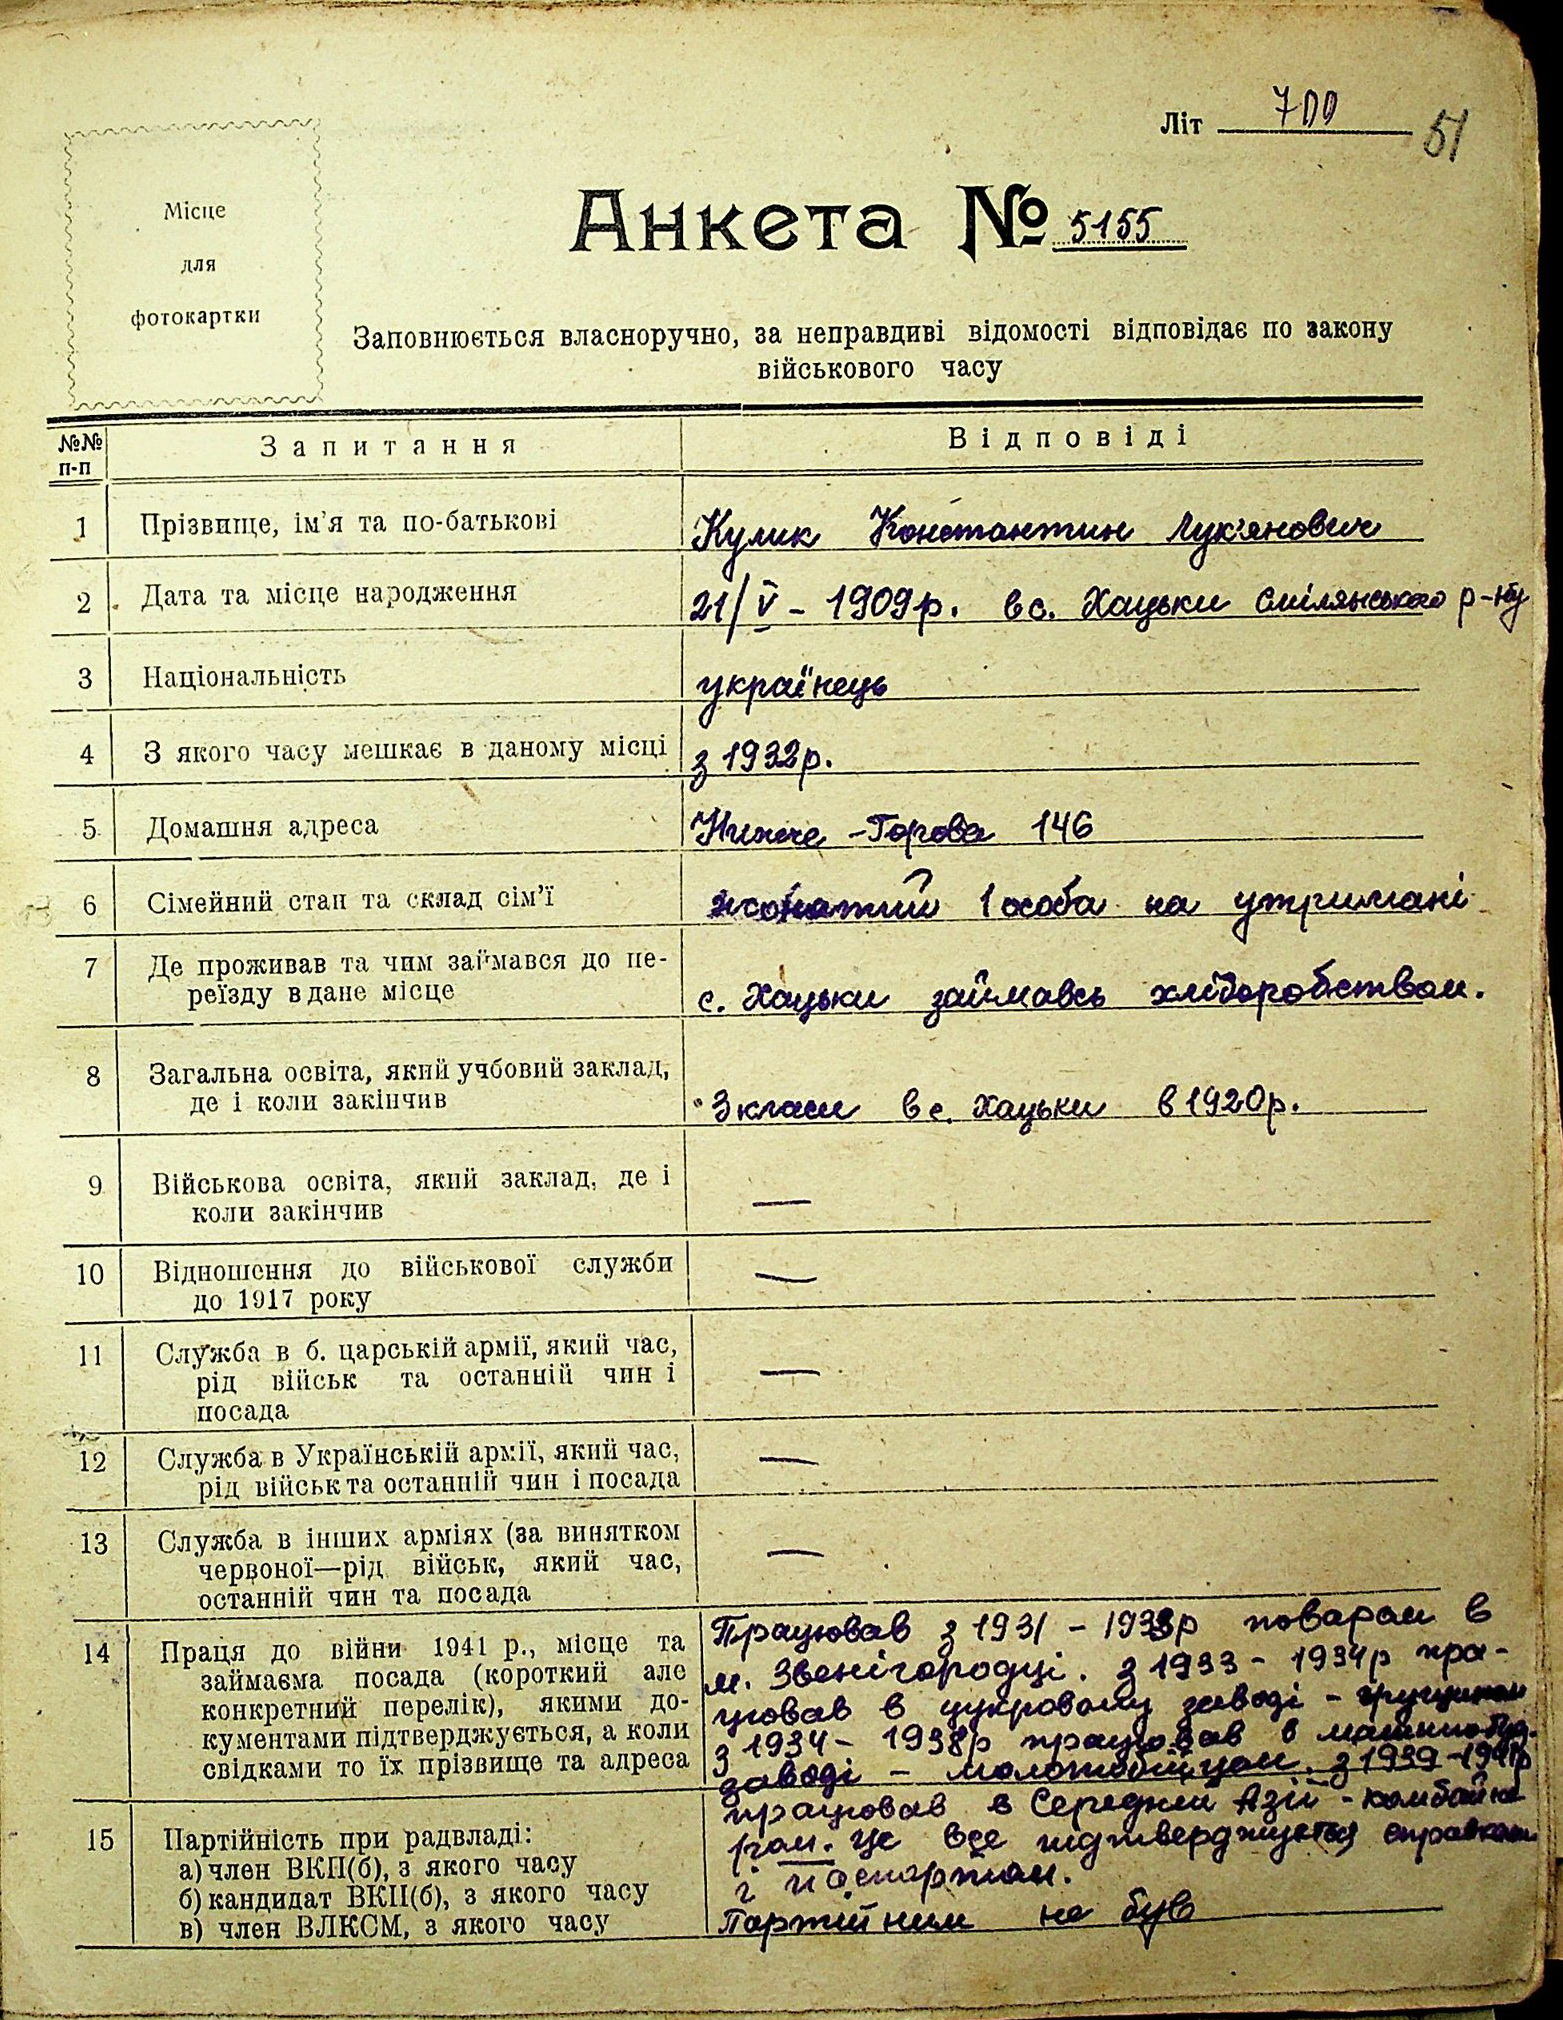 Літ 700
51
Місце
для
фотокартки
Анкета № 5155
Заповнюється власноручно, за неправдиві відомості відповідає по закону
військового часу
№№ п-п Запитання Відповіді
1 Прізвище, ім'я та по-батькові Кулик Константин Лук'янович
2 Дата та місце народження 21/V – 1909р. в с. Хацьки Смілянського р-ну
3 Національність українець
4 З якого часу мешкає в даному місці з 1932р.
5 Домашня адреса Нижче-Горова 146
6 Сімейний стан та склад сім'ї жонатий 1 особа на утримані
7 Де проживав та чим займався до пе-
реїзду в дане місце с. Хацьки займавсь хліборобством.
8 Загальна освіта, який учбовий заклад,
де і коли закінчив 3 класи в с. Хацьки в 1920р.
9 Військова освіта, який заклад, де і
коли закінчив —
10 Відношення до військової служби
до 1917 року —
11 Служба в б. царській армії, який час,
рід військ та останній чин і
посада —
12 Служба в Українській армії, який час,
рід військ та останній чин і посада —
13 Служба в інших арміях (за винятком
червоної—рід військ, який час,
останній чин та посада —
14 Праця до війни 1941 р., місце та
займаєма посада (короткий але
конкретний перелік), якими до-
кументами підтверджується, а коли
свідками то їх прізвище та адреса
Працював з 1931 – 1933р поваром в
м. Звенігородці. з 1933 – 1934р пра-
цював в цукровому заводі –
з 1934 – 1938р працював в машино-буд.
заводі – молотобійцом. з 1939-1941р
працював в Середній Азії – комбайне-
ром. це все підтверджується справками
і паспортом.
15 Партійність при радвладі:
а) член ВКП(б), з якого часу
б) кандидат ВКП(б), з якого часу
в) член ВЛКСМ, з якого часу
Партійним не був